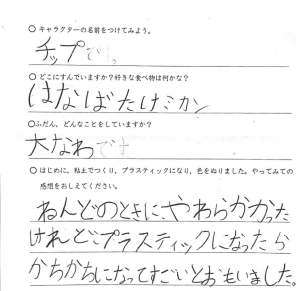 ○ キャラクターの名前をつけてみよう。
チップです。
○ どこにすんでいますか?好きな食べ物は何かな?
はなばたけミカン
○ふだん、どんなことをしていますか?
大なわです
○ はじめに、粘土でつくり、プラスティックになり、色をぬりました。やってみての
感想をおしえてください。
ねんどのときに、やわらかかった
けれどプラスティックになったら
かちかちになってすごいとおもいました。